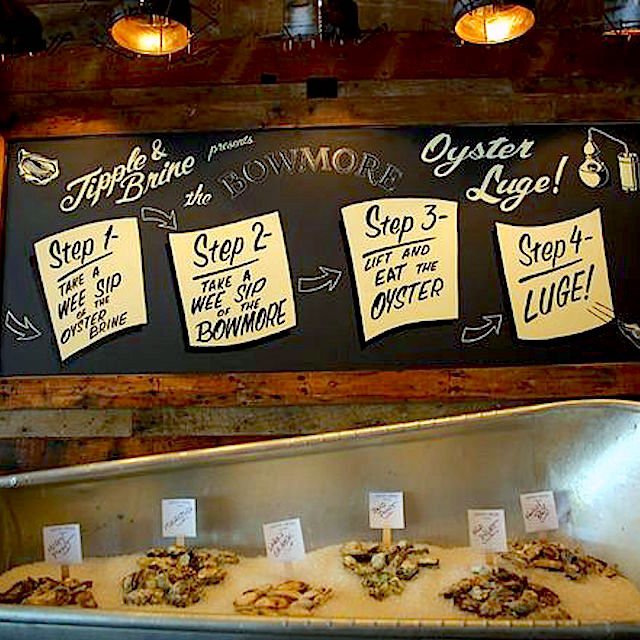 Tipple &
Brine presents
the BOWMORE
Oyster
Luge!
Step 1-
TAKE A
WEE SIP
OF THE
OYSTER
BRINE
Step 2-
TAKE A
WEE SIP
OF THE
BOWMORE
Step 3-
LIFT AND
EAT THE
OYSTER
Step 4-
LUGE!